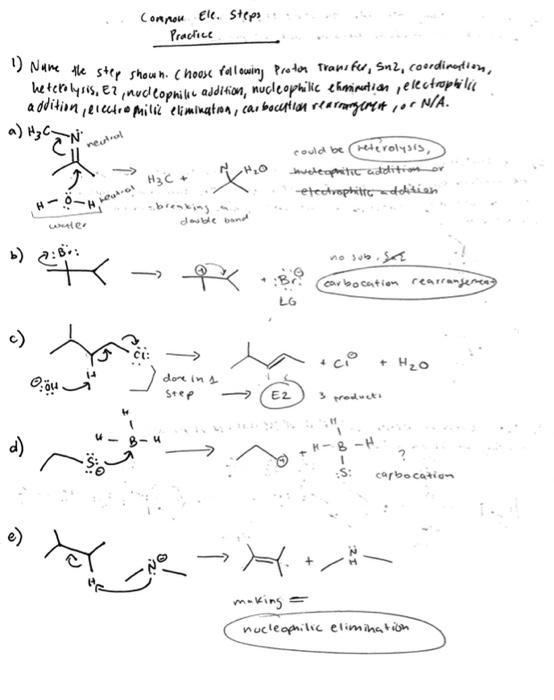 Common Ele. Steps
Practice
1) Name the step shown. Choose following Proton Transfer, SN2, coordination,
heterolysis, E2, nucleophilic addition, nucleophilic elimination, electrophilic
addition, electrophilic elimination, carbocation rearrangement, or N/A.
a) H₃C N: neutral
H-Ö-H neutral
water
H₃C + N H₂O
breaking a
double bond
could be heterolysis,
nucleophilic addition or
electrophilic addition
b) :Br:
⊕ + :Br:⊖
LG
no sub. SN2
carbocation rearrangement
c) ⊖:ÖH H Cl:
done in 1
step
+ Cl⊖ + H₂O
E2 3 products
d) H
H-B-H
:S:⊖
⊕ + H
H-B-H
:S:
?
carbocation
e) H N⊖
+ N
H
making =
nucleophilic elimination